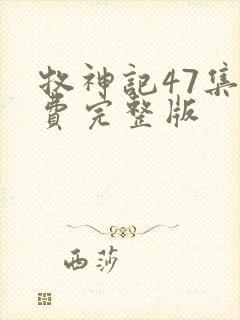 牧神记47集
費完整版
西莎